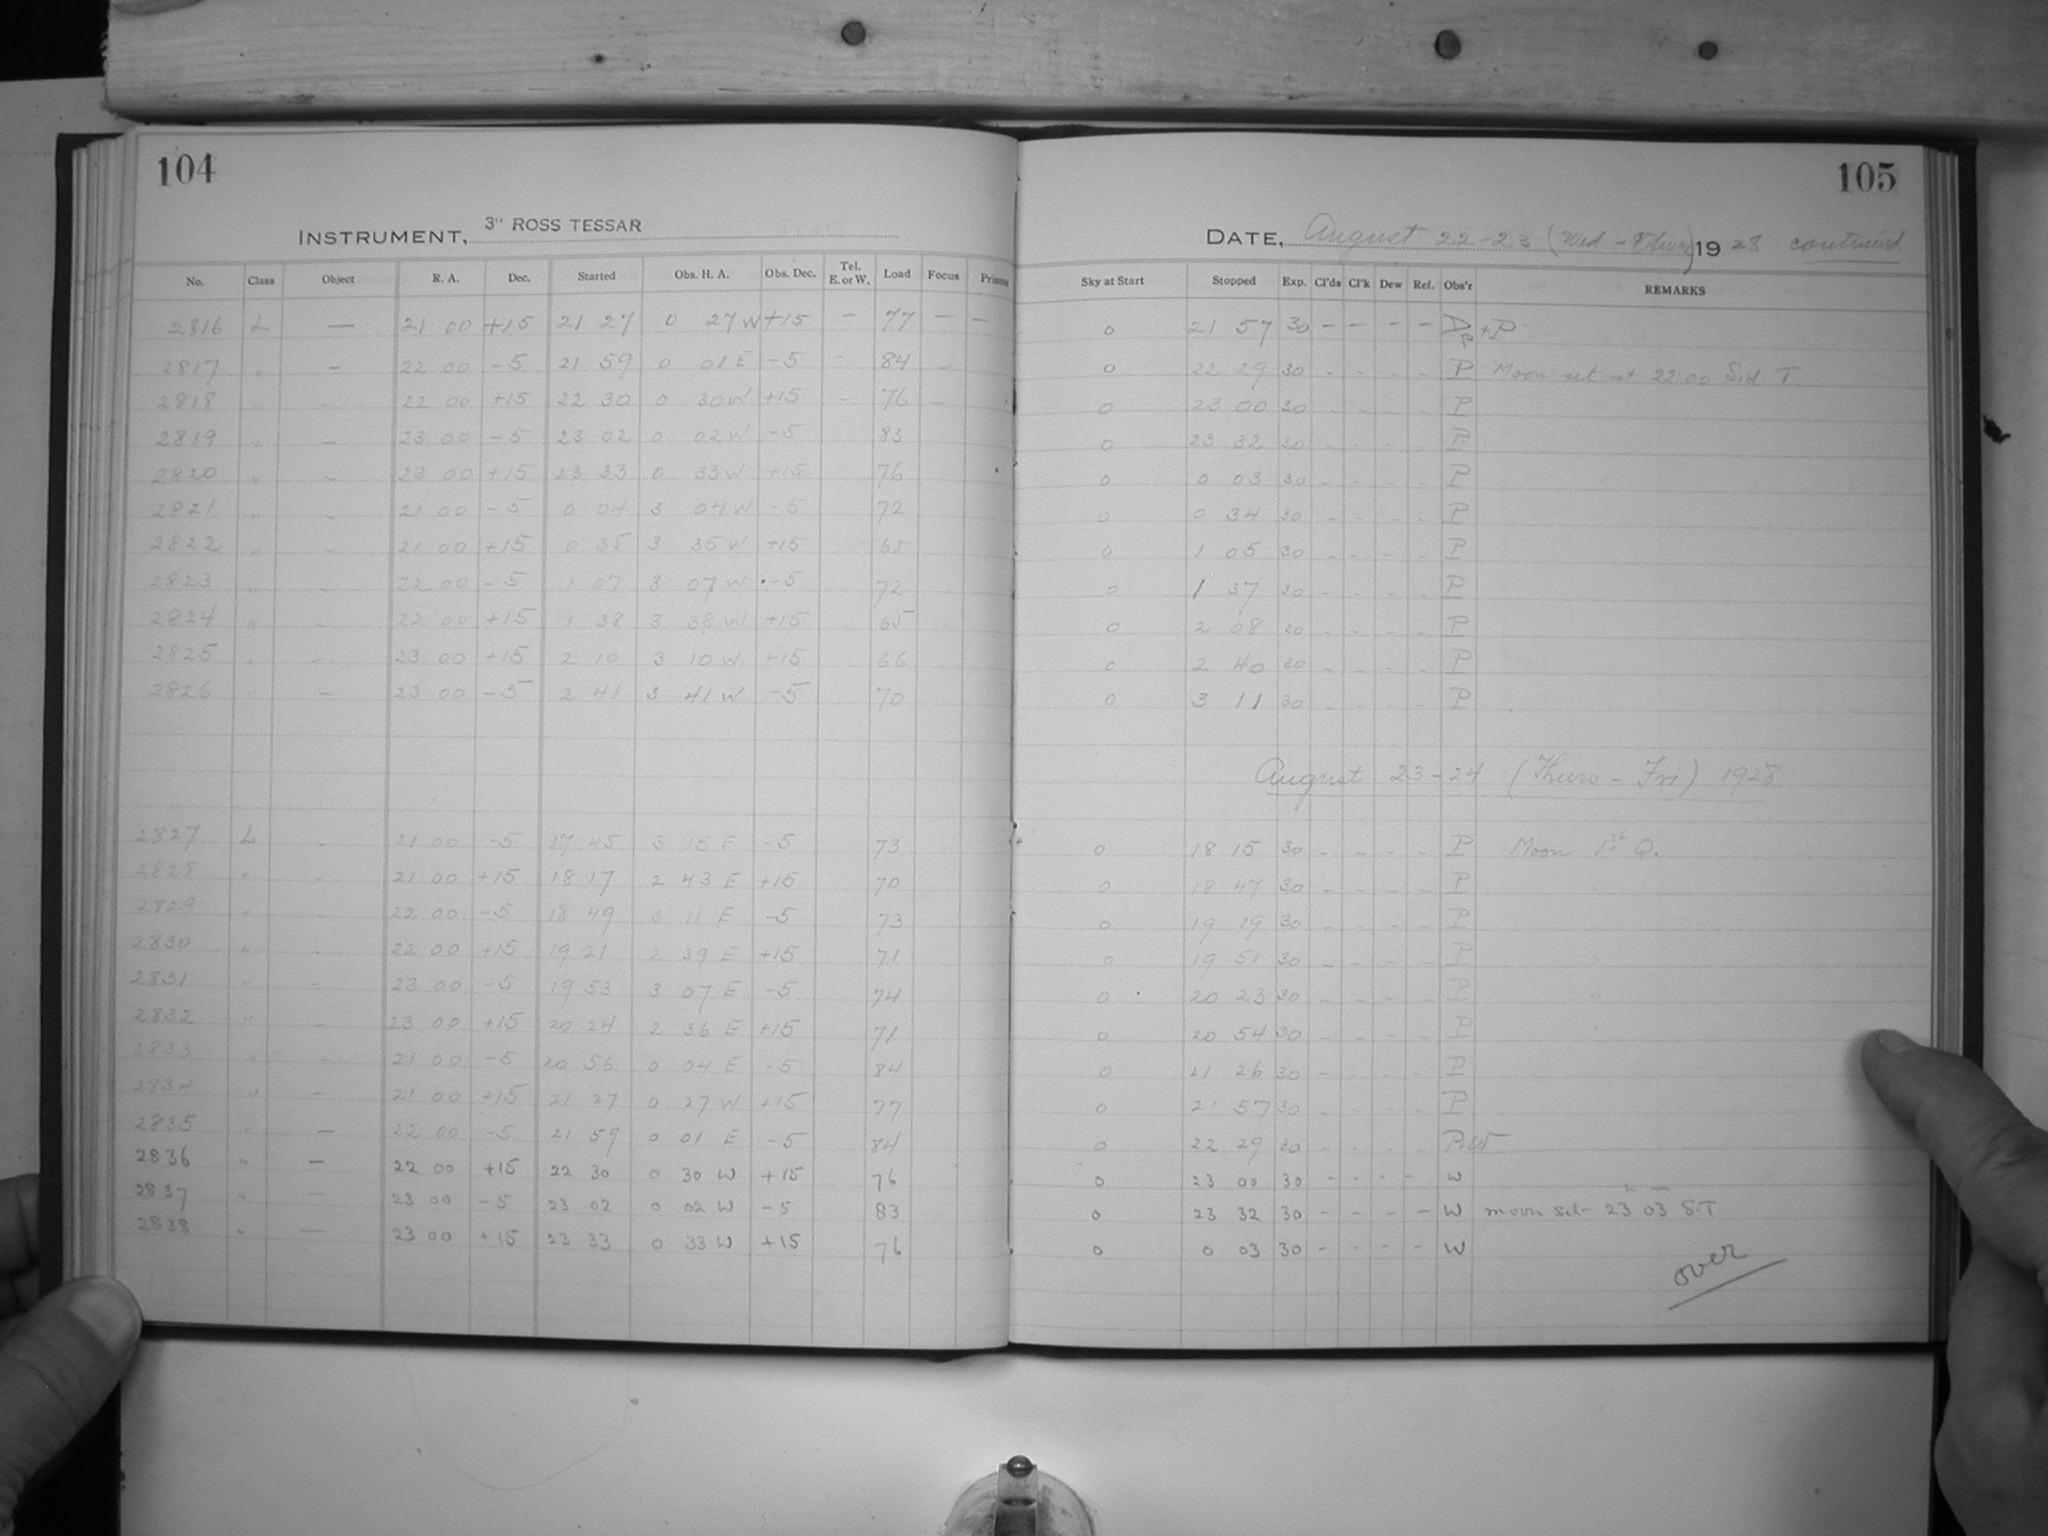 104
105
INSTRUMENT, 3" ROSS TESSAR
DATE, August 22-23 (Wed - Thurs) 1928 continued
No. Class Object R. A. Dec. Started Obs. H. A. Obs. Dec. Tel. E. or W. Load Focus Prisms Sky at Start Stopped Exp. Cl'ds Cl'k Dew Ref. Obs'r REMARKS
2816 L — 21 00 +15 21 27 0 27 W +15 — 77 — — 0 21 57 30 - - - - +P
2817 " - 22 00 -5 21 59 0 01 E -5 - 84 - 0 22 29 30 - - - - P Moon set at 22 00 Sid T.
2818 " - 22 00 +15 22 30 0 30 W +15 - 76 - 0 23 00 30 - - - - P
2819 " - 23 00 -5 23 02 0 02 W -5 83 0 23 32 30 - - - - P
2820 " - 23 00 +15 23 33 0 33 W +15 76 0 0 03 30 - - - - P
2821 " - 21 00 -5 0 04 3 04 W -5 72 0 0 34 30 - - - - P
2822 " - 21 00 +15 0 35 3 35 W +15 65 0 1 05 30 - - - - P
2823 " - 22 00 -5 1 07 3 07 W -5 72 0 1 37 30 - - - - P
2824 " - 22 00 +15 1 38 3 38 W +15 65 0 2 08 30 - - - - P
2825 " - 23 00 +15 2 10 3 10 W +15 66 0 2 40 30 - - - - P
2826 " - 23 00 -5 2 41 3 41 W -5 70 0 3 11 30 - - - - P
August 23-24 (Thurs - Fri) 1928
2827 L - 21 00 -5 17 45 3 15 E -5 73 0 18 15 30 - - - - P Moon 1st Q.
2828 " - 21 00 +15 18 17 2 43 E +15 70 0 18 47 30 - - - - P "
2829 " - 22 00 -5 18 49 3 11 E -5 73 0 19 19 30 - - - - P "
2830 " - 22 00 +15 19 21 2 39 E +15 71 0 19 51 30 - - - - P "
2831 " - 23 00 -5 19 53 3 07 E -5 74 0 20 23 30 - - - - P "
2832 " - 23 00 +15 20 24 2 36 E +15 71 0 20 54 30 - - - - P "
2833 " - 21 00 -5 20 56 0 04 E -5 84 0 21 26 30 - - - - P
2834 " - 21 00 +15 21 27 0 27 W +15 77 0 21 57 30 - - - - P
2835 " - 22 00 -5 21 59 0 01 E -5 84 0 22 29 30 - - - - P.W
2836 " - 22 00 +15 22 30 0 30 W +15 76 0 23 00 30 - - - - W
2837 " - 23 00 -5 23 02 0 02 W -5 83 0 23 32 30 - - - - W moon set 23h 03m S.T
2838 " - 23 00 +15 23 33 0 33 W +15 76 0 0 03 30 - - - - W
over